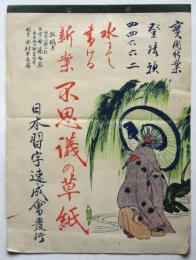 實用新案
登録願
四四六六二
水にて
書ける
新案 不思議の草紙
日本習字速成會發行